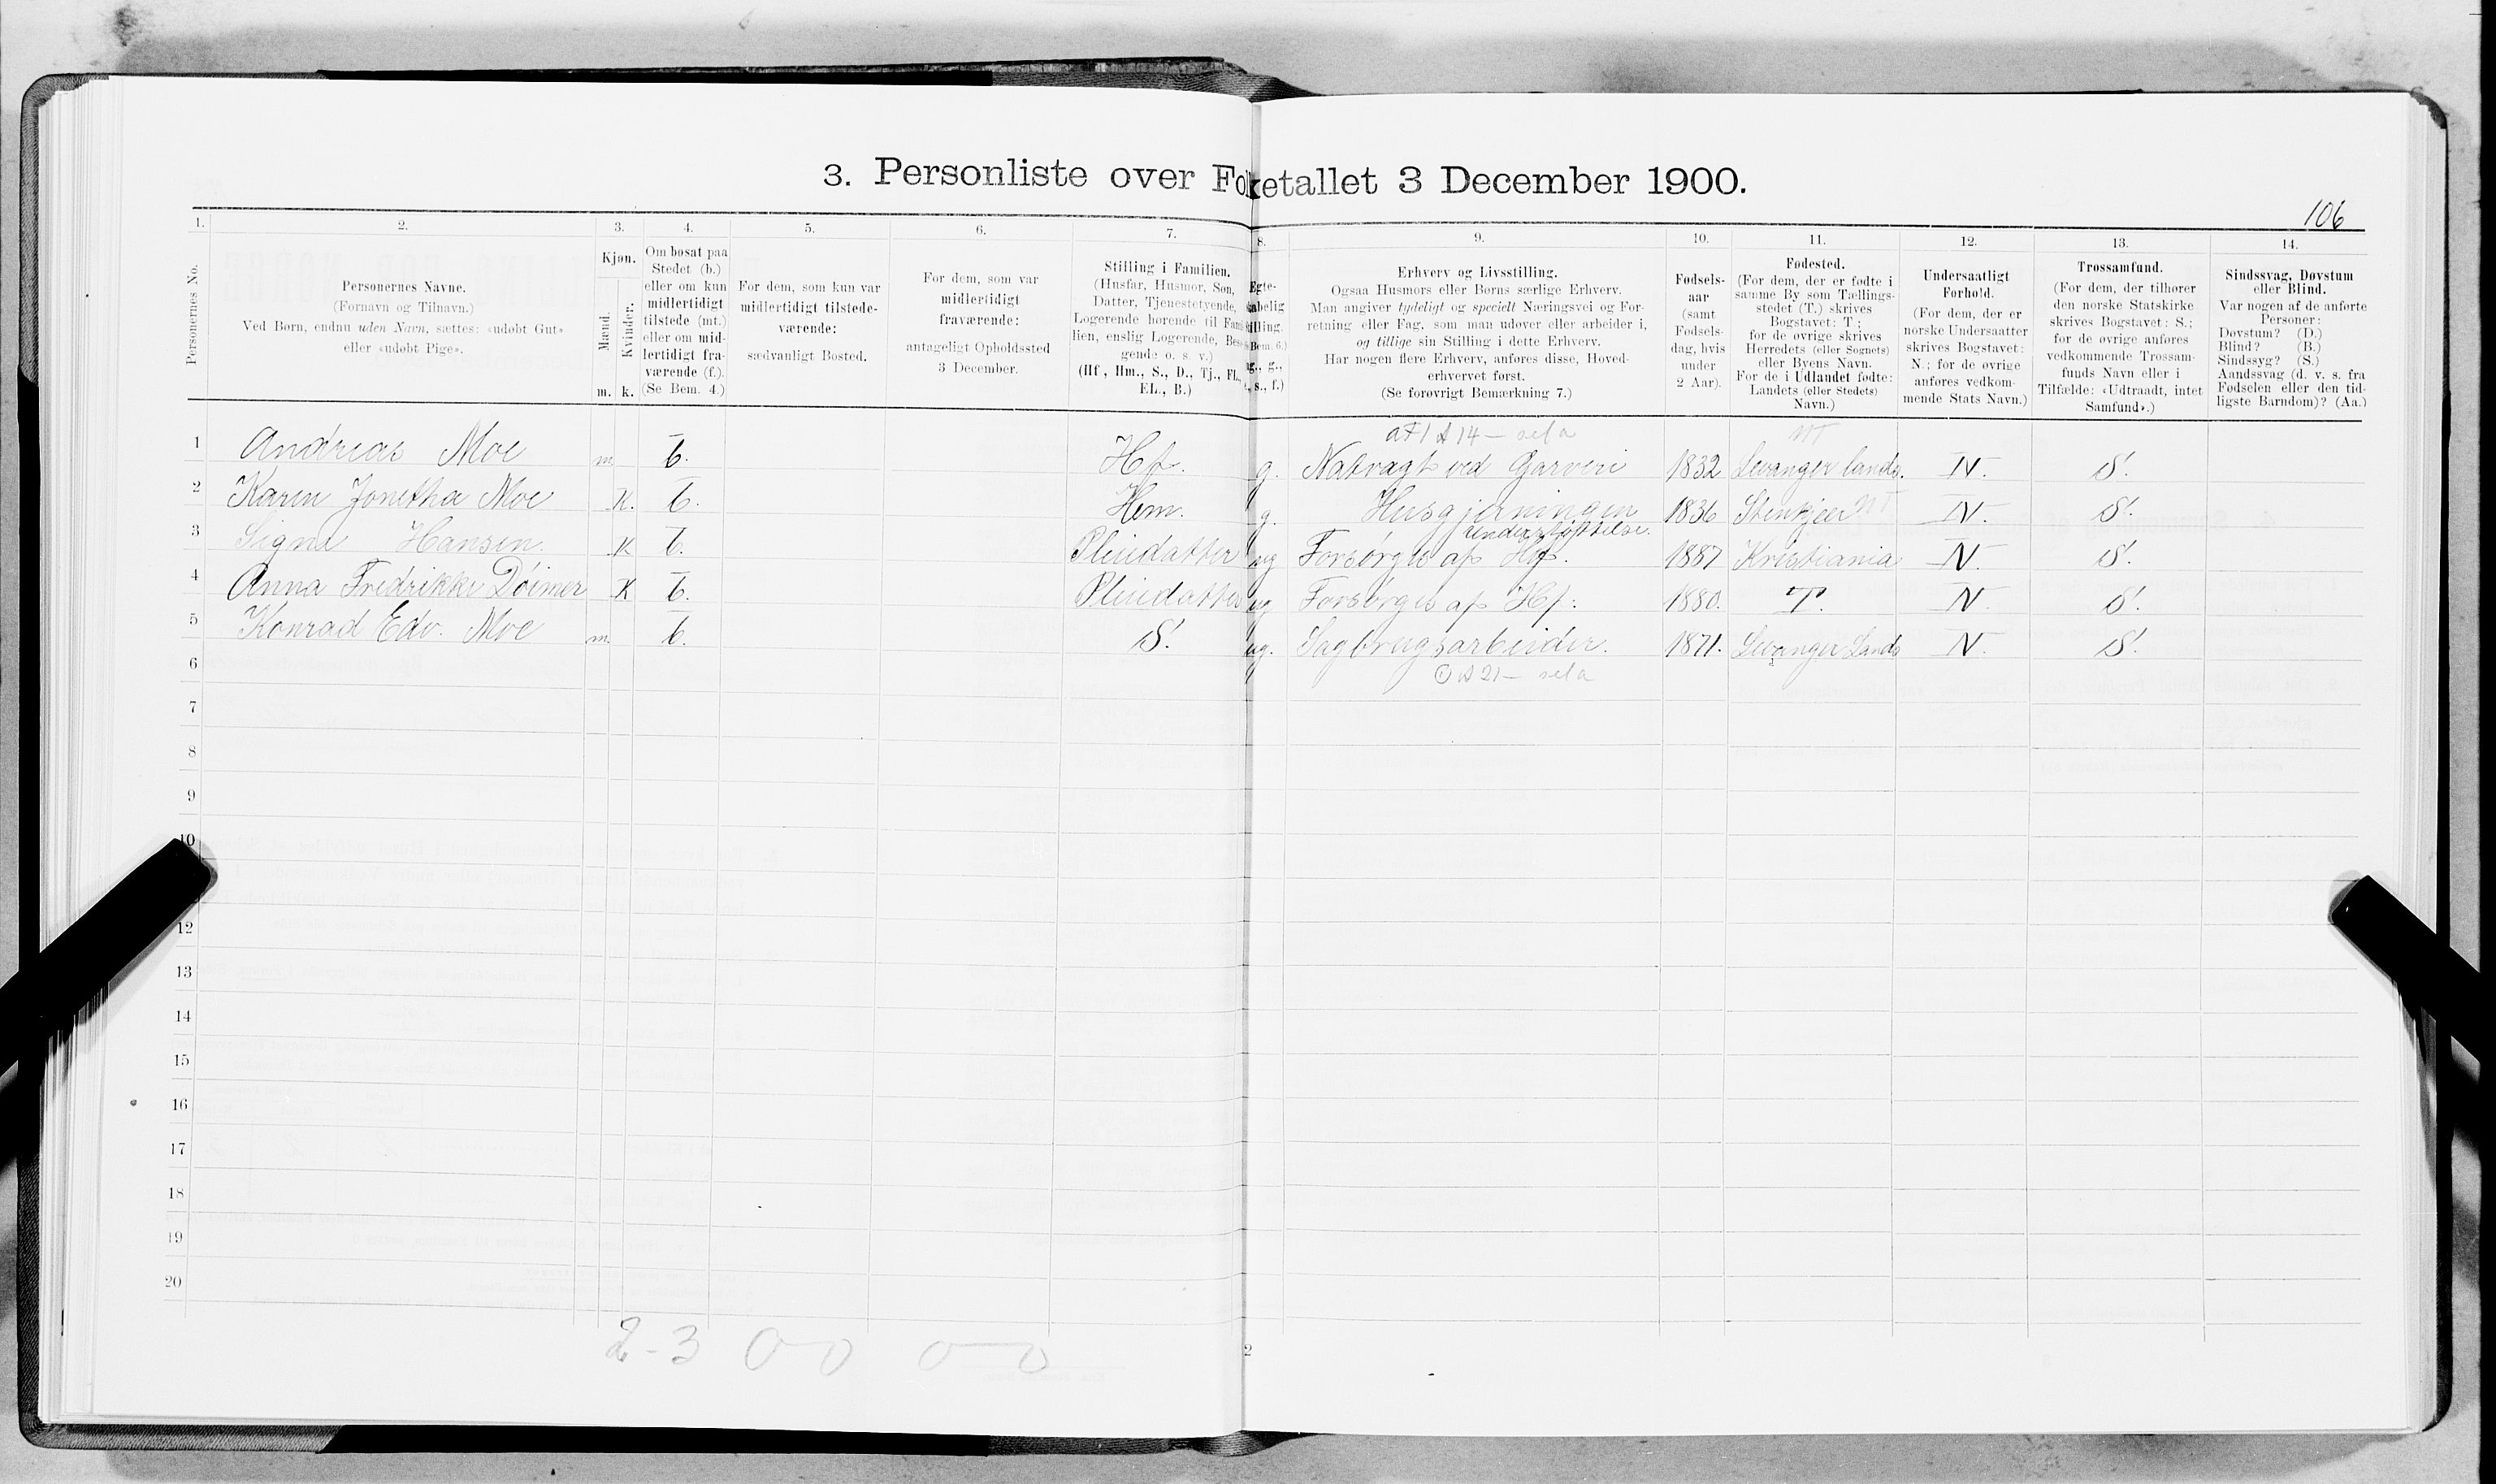 3. Personliste over Folketallet 3 December 1900.
106
1. 2. 3. 4. 5. 6. 7. 8. 9. 10. 11. 12. 13. 14.
Personernes No.
Personernes Navne.
(Fornavn og Tilnavn.)
Ved Børn, endnu uden Navn, sættes: «udøbt Gut»
eller «udøbt Pige».
Kjøn.
Mænd.
Kvinder.
m. k.
Om bosat paa
Stedet (b.)
eller om kun
midlertidigt
tilstede (mt.)
eller om mid-
lertidigt fra-
værende (f.).
(Se Bem. 4.)
For dem, som kun var
midlertidigt tilstede-
værende:
sædvanligt Bosted.
For dem, som var
midlertidigt
fraværende:
antageligt Opholdssted
3 December.
Stilling i Familien.
(Husfar, Husmor, Søn,
Datter, Tjenestetyende,
Logerende hørende til Fami-
lien, enslig Logerende, Besø-
gende o. s. v.)
(Hf., Hm., S., D., Tj., FL.,
EL., B.)
Egte-
skabelig
Stilling.
(Se Bem. 6.)
(ug., g.,
e., s., f.)
Erhverv og Livsstilling.
Ogsaa Husmors eller Børns særlige Erhverv.
Man angiver tydeligt og specielt Næringsvei og For-
retning eller Fag, som man udøver eller arbeider i,
og tillige sin Stilling i dette Erhverv.
Har nogen flere Erhverv, anføres disse, Hoved-
erhvervet først.
(Se forøvrigt Bemærkning 7.)
Fødsels-
aar
(samt
Fødsels-
dag, hvis
under
2 Aar).
Fødested.
(For dem, der er fødte i
samme By som Tællings-
stedet (T.) skrives
Bogstavet: T;
for de øvrige skrives
Herredets (eller Sognets)
eller Byens Navn.
For de i Udlandet fødte:
Landets (eller Stedets)
Navn.)
Undersaatligt
Forhold.
(For dem, der er
norske Undersaatter
skrives Bogstavet:
N.; for de øvrige
anføres vedkom-
mende Stats Navn.)
Trossamfund.
(For dem, der tilhører
den norske Statskirke
skrives Bogstavet: S.;
for de øvrige anføres
vedkommende Trossam-
funds Navn eller i
Tilfælde: «Udtraadt, intet
Samfund».)
Sindssvag, Døvstum
eller Blind.
Var nogen af de anførte
Personer:
Døvstum? (D.)
Blind? (B.)
Sindssyg? (S.)
Aandssvag (d. v. s. fra
Fødselen eller den tid-
ligste Barndom)? (Aa.)
NT
1 Andreas Moe m. b. Hf. g. Natvagt ved Garveri 1832 Levanger lands. N. S.
2 Karen Jonetha Moe K. b. Hm. g. Husgjerningen 1836 Stenkjer NT N. S.
understøttelse.
3 Signe Hansen. K b. Pleiedatter ug Forsørges af Hf. 1887 Kristiania N. S.
4 Anna Fredrikke Döimer K b. Pleiedatter ug Forsørges af Hf. 1880. T. N. S.
5 Konrad Edv. Moe m. b. S. ug. Sagbrugsarbeider. 1871. Levanger Lands N. S.
6
7
8
9
10
12
13
14
15
16
17
18
19
20
2-3 0-0 0-0
2